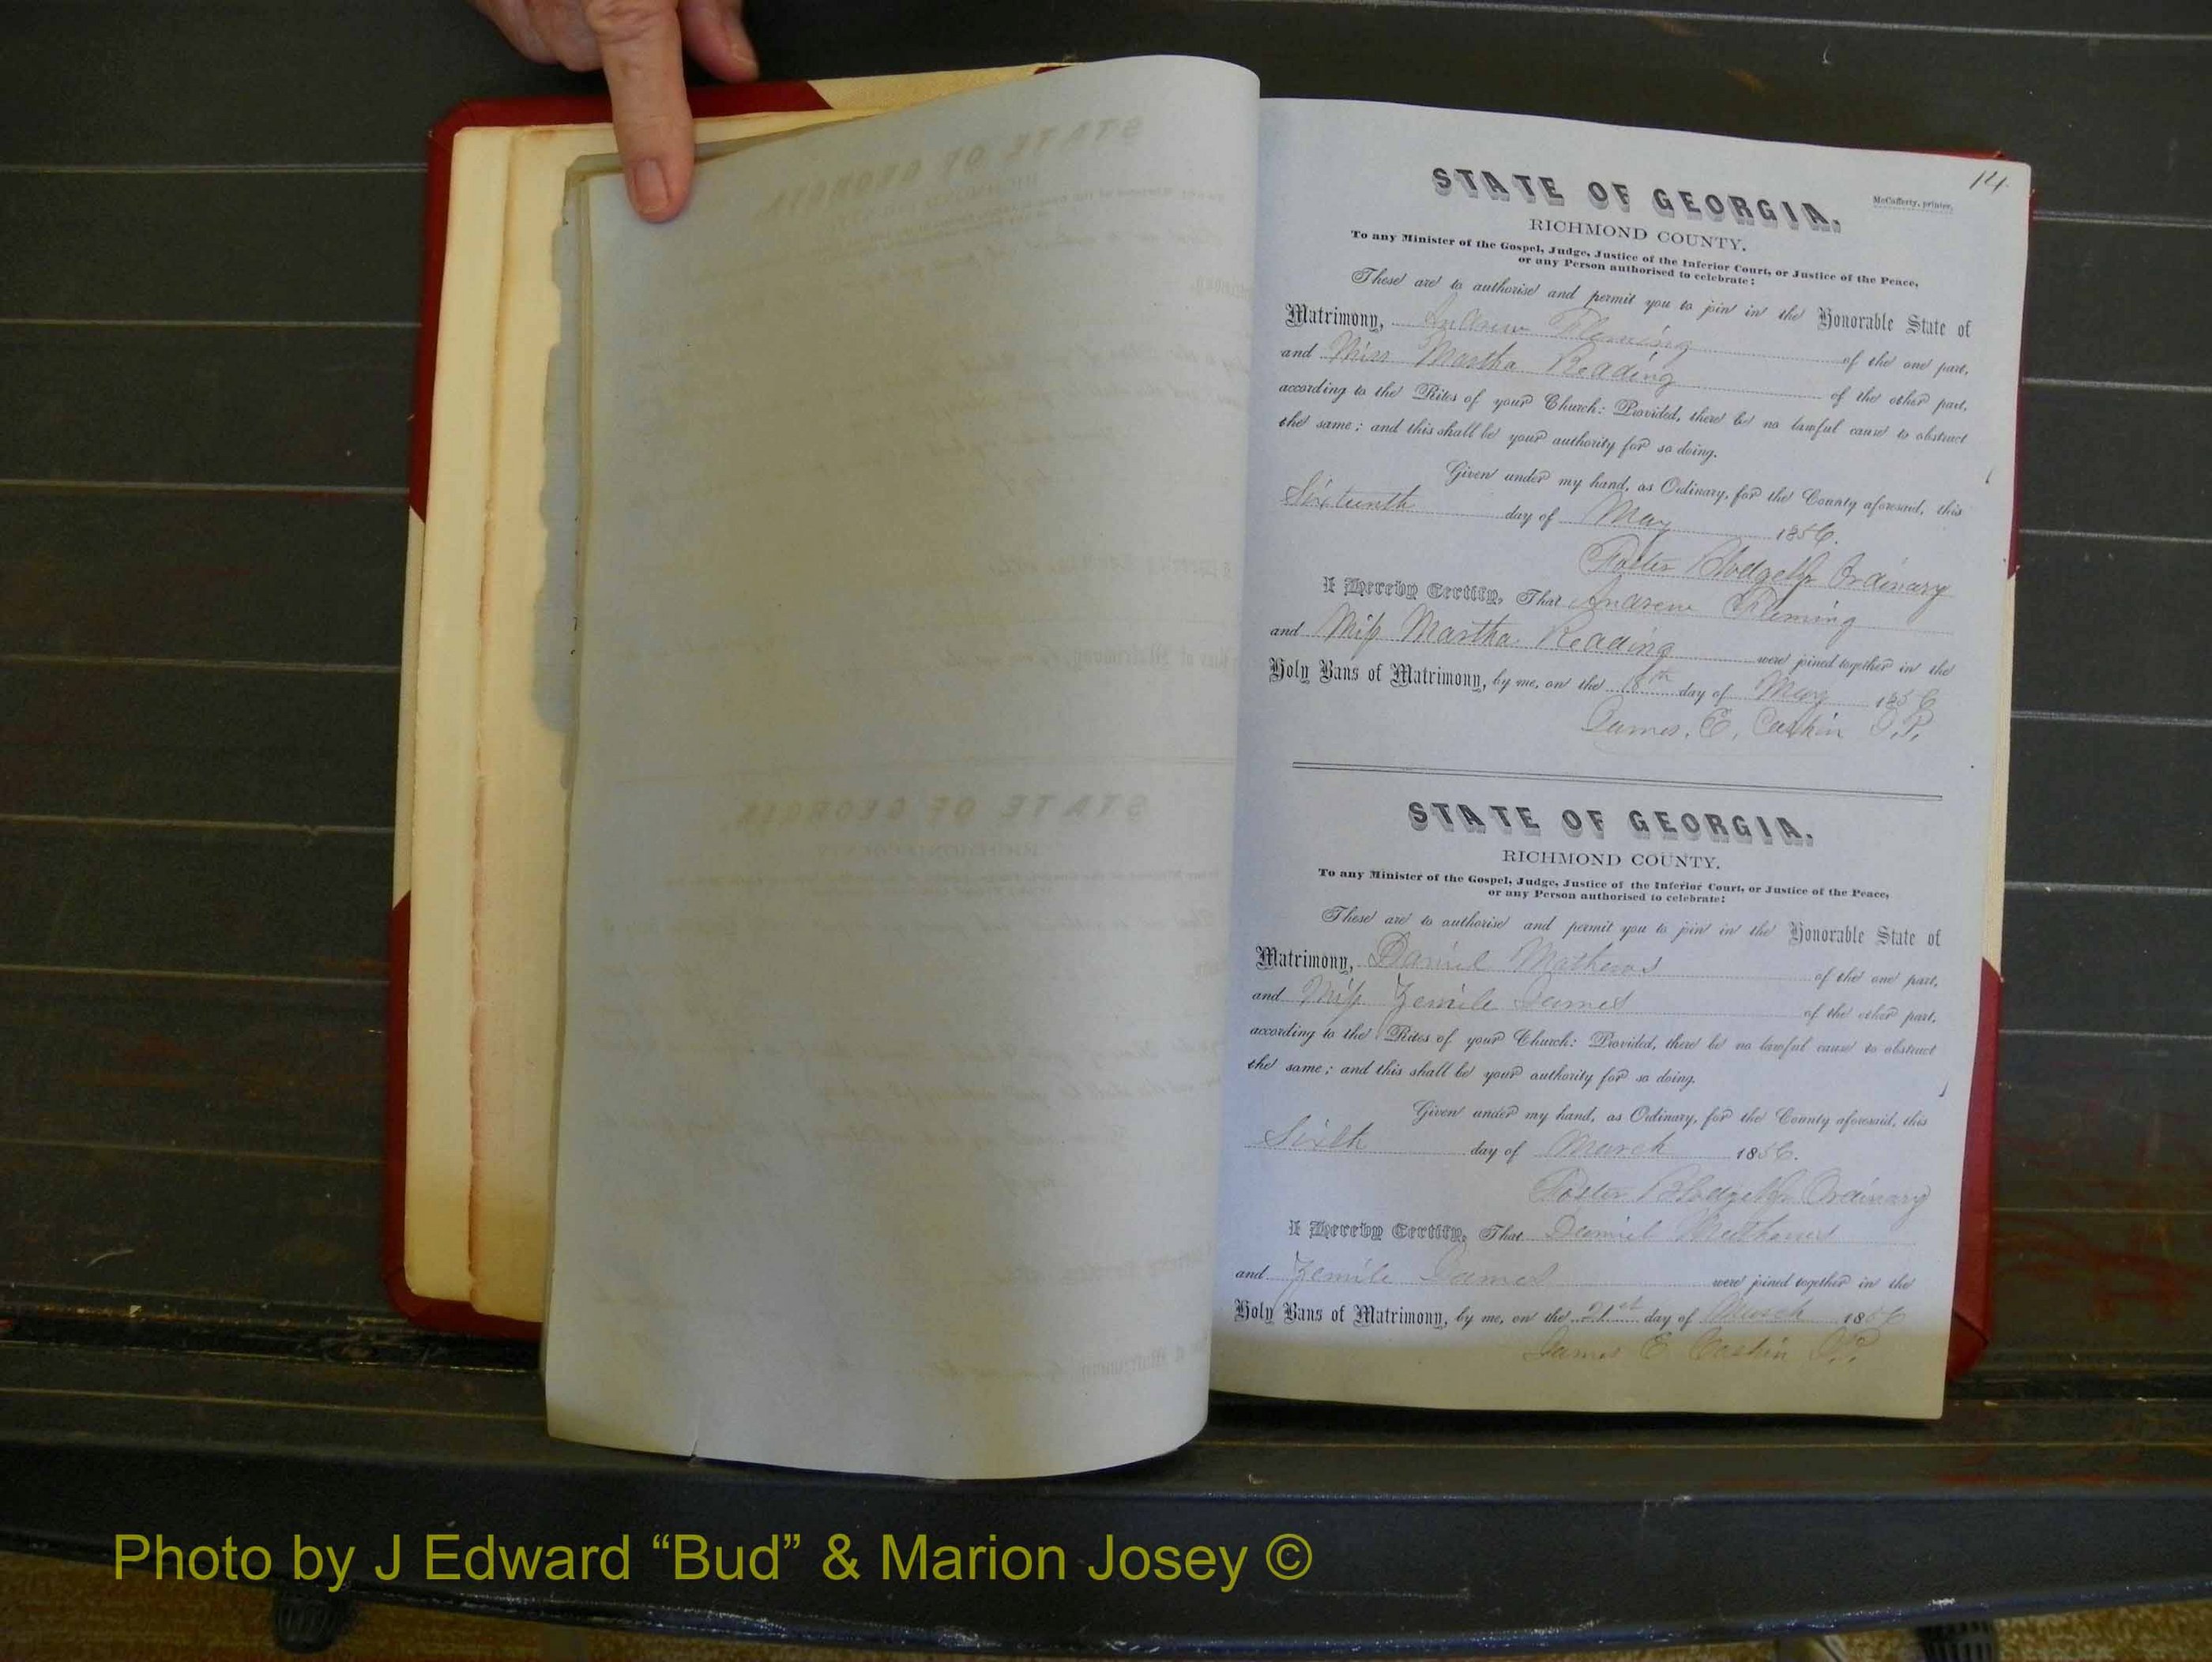 14
STATE OF GEORGIA.
McCafferty, printer.
RICHMOND COUNTY.
To any Minister of the Gospel, Judge, Justice of the Inferior Court, or Justice of the Peace,
or any Person authorised to celebrate:
These are to authorise and permit you to join in the Honorable State of
Matrimony, Andrew Fleming of the one part,
and Miss Martha Reading of the other part,
according to the Rites of your Church: Provided, there be no lawful cause to obstruct
the same; and this shall be your authority for so doing.
Given under my hand, as Ordinary, for the County aforesaid, this
Sixteenth day of May 1856.
Foster Blodget Jr Ordinary
I Hereby Certify, That Andrew Fleming
and Miss Martha Reading were joined together in the
Holy Bans of Matrimony, by me, on the day of May 1856
James. E, Cashin J.P.
STATE OF GEORGIA.
RICHMOND COUNTY.
To any Minister of the Gospel, Judge, Justice of the Inferior Court, or Justice of the Peace,
or any Person authorised to celebrate:
These are to authorise and permit you to join in the Honorable State of
Matrimony, Daniel Mathews of the one part,
and Miss James of the other part,
according to the Rites of your Church: Provided, there be no lawful cause to obstruct
the same; and this shall be your authority for so doing.
Given under my hand, as Ordinary, for the County aforesaid, this
Sixth day of March 1856.
Foster Blodget Jr Ordinary
I Hereby Certify, That Daniel
and James were joined together in the
Holy Bans of Matrimony, by me, on the 21st day of March 1856
James E Cashin J.P.
Photo by J Edward “Bud” & Marion Josey ©